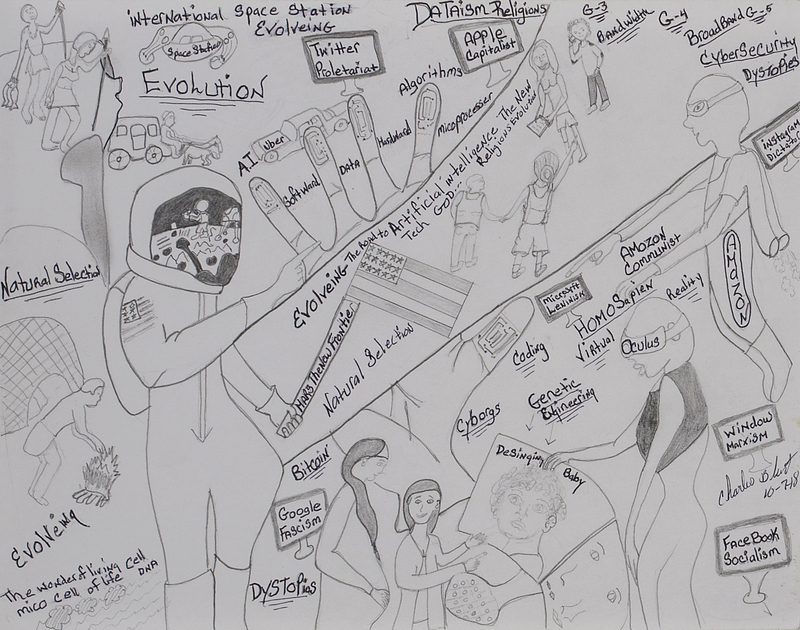 International Space Station
Evolveing
Space Station
Evolution
DATAism Religions
Twitter
Proletariat
Apple
Capitalist
G-3
BandWidth
G-4
BroadBand G-5
CyberSecurity
Dystopies
instagram
Dictator
Algorithms
A.I
Uber
Softward
DATA
Hardward
micoprocesser
Evolveing The Road to Artificial intelligence The New
Religious Evolution
Tech GOD...
Natural Selection
Mars The New Frontier
Natural Selection
AMOZON
Communist
AMOZON
microsoft
Leninism
HomoSapien
Virtual
Reality
Oculus
Coding
Cyborgs
Genetic
Engineering
Desinging
Baby
Bitcoin
Google
Fascism
Dystopias
Window
Marxism
10-7-18
FaceBook
Socialism
Evolveing
The wonder of living cell
mico cell of life DNA